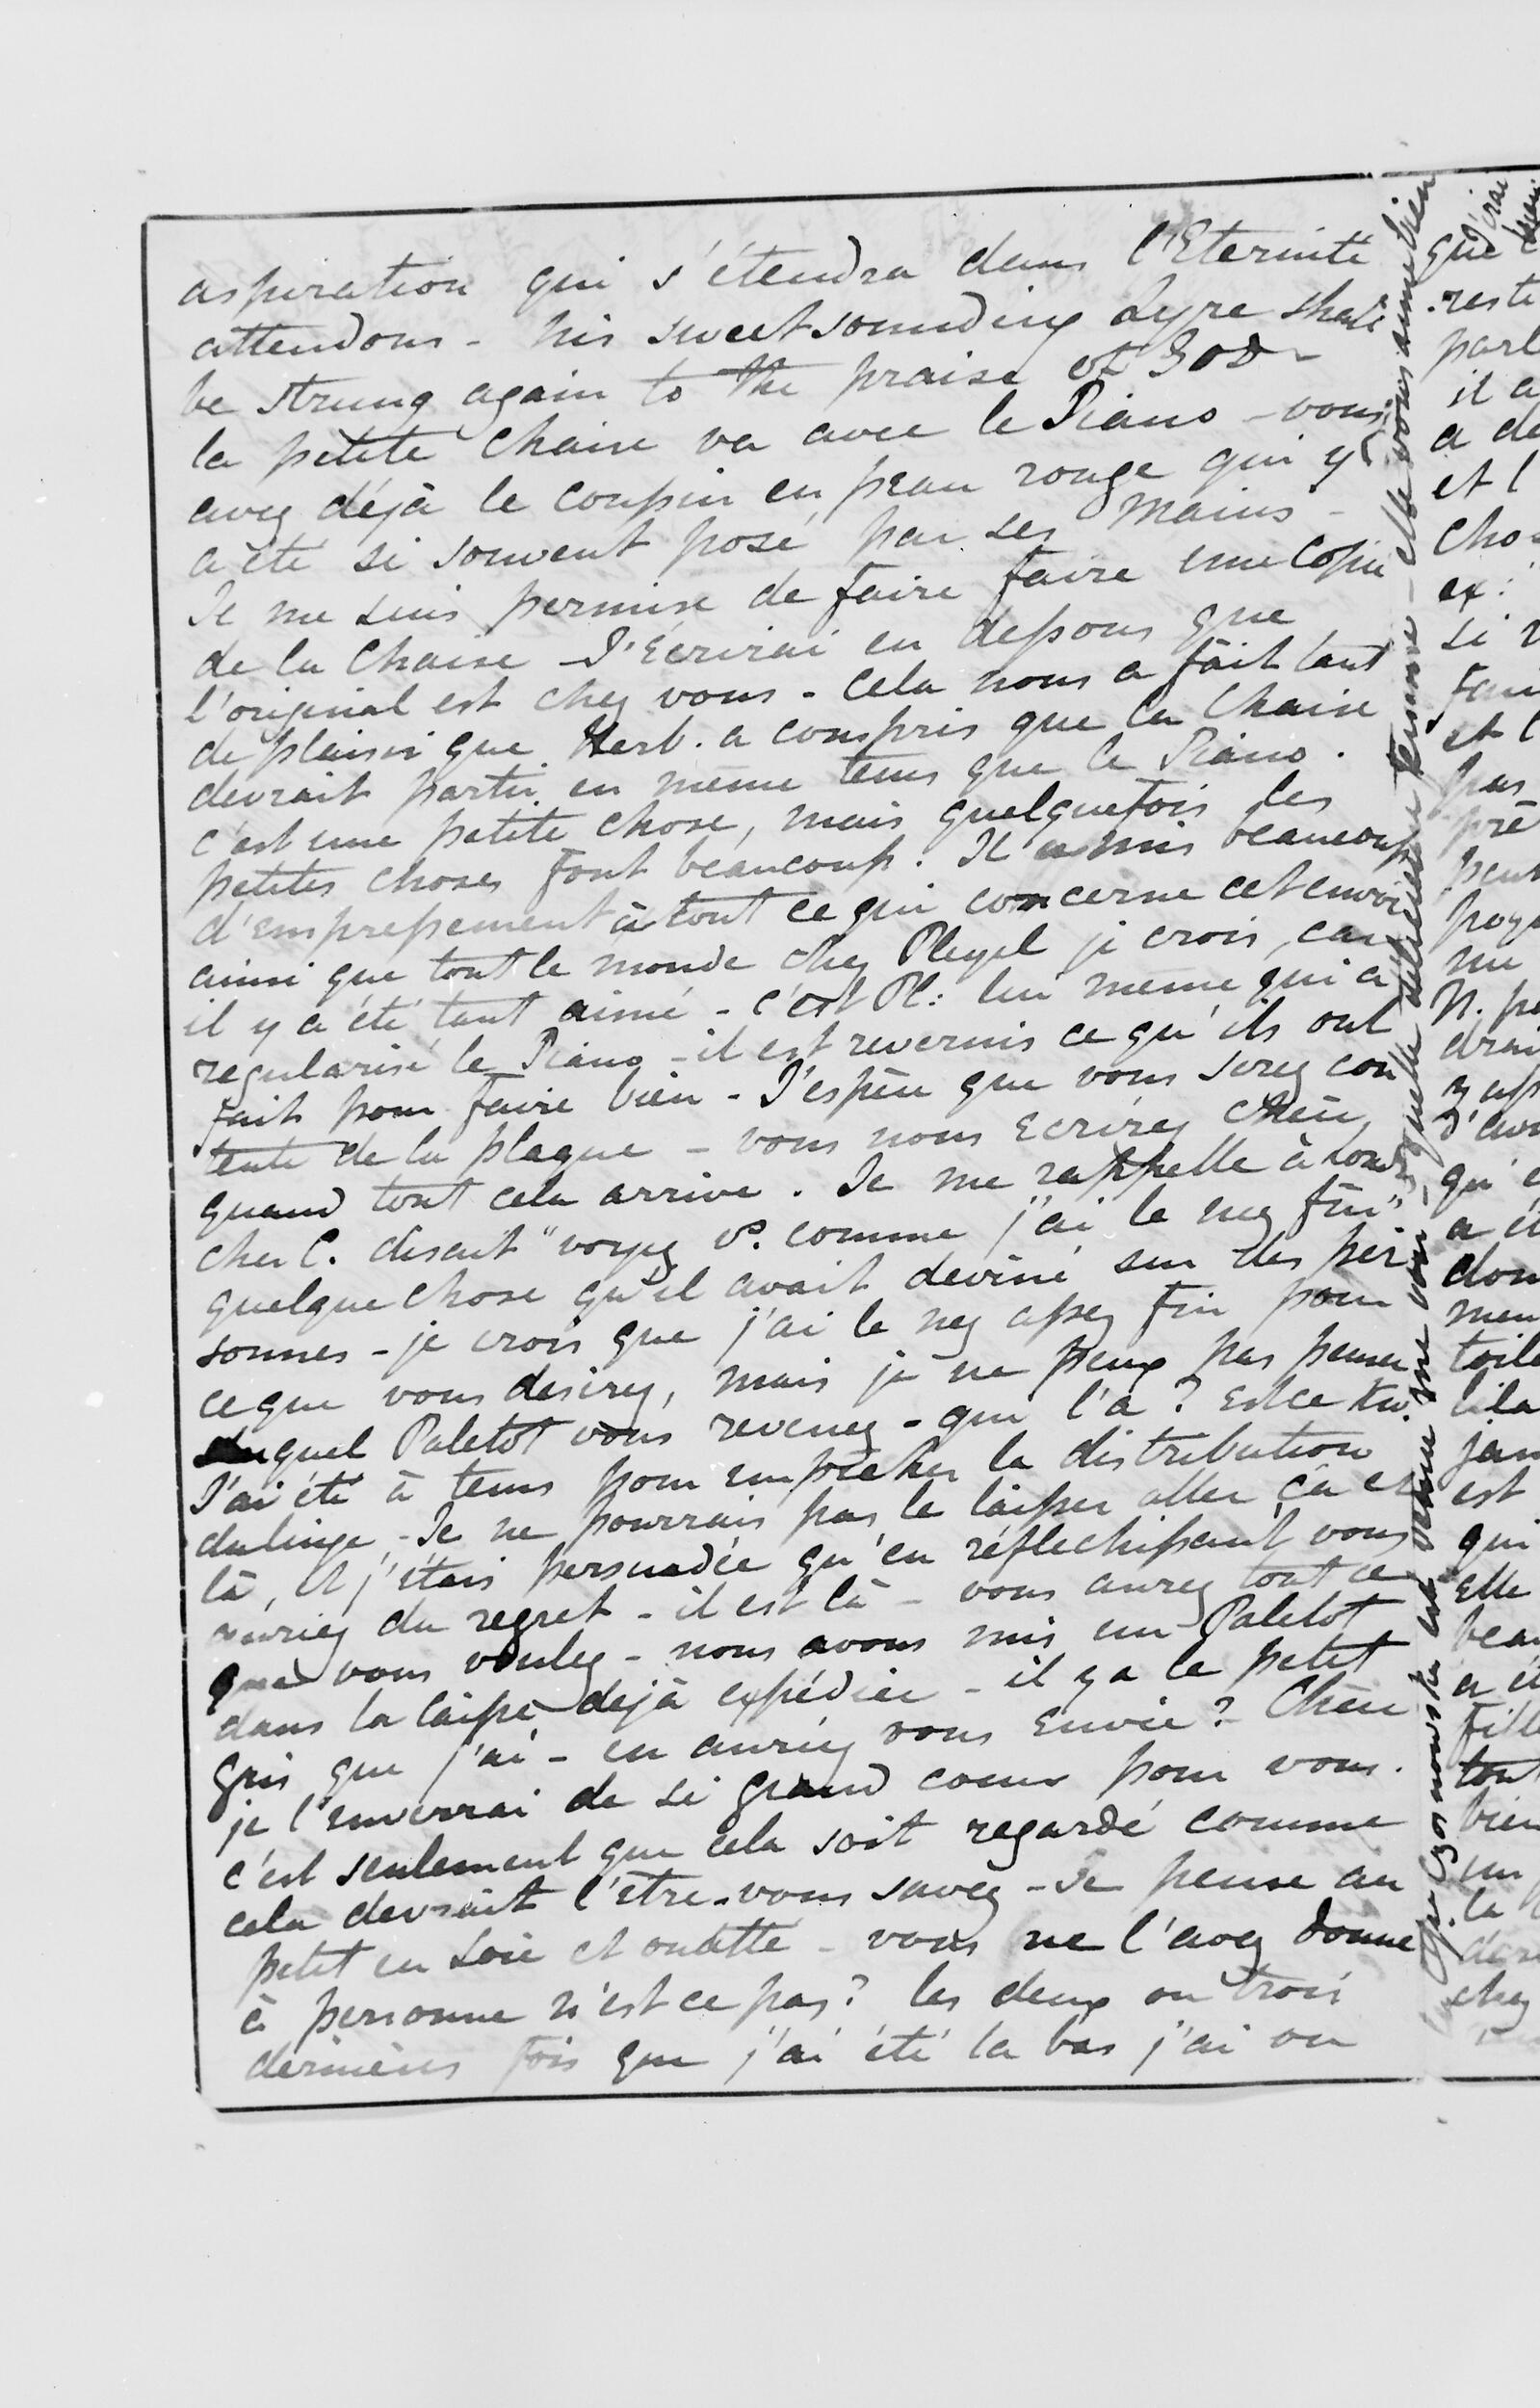 aspiration qui s'étendra dans l'Eternité
attendons - his sweet sounding Lyre shall
be strung again to the praise of GOD -
la petite Chaise va avec le Piano - vous
avez déjà le coussin en peau rouge qui y
a été si souvent posé par ses mains -
Je me suis permise de faire faire une Copie
de la Chaise - J'Ecrirai en dessous que
l'original est chez vous - cela nous a fait tant
de plaisir que Herb. a compris que la Chaise
devrait partir en même tems que le Piano.
c'est une petite chose, mais quelquefois les
petites choses font beaucoup. Il a mis beaucoup
d'empressement à tout ce qui concerne cet envoi
ainsi que tout le monde chez Pleyel je crois, car
il y a été tant aimé - c'est Pl: lui meme qui a
regularisé le Piano - il est revernis ce qu'ils ont
fait pour faire bien - J'espère que vous serez con
tente de la plaque - vous nous Ecrirez Chère
quand tout cela arrive. Je me rappelle à Lond
cher C. disait "voyez vs. comme j'ai le nez fin"
quelque chose qu'il avait deviné sur des per
sonnes - je crois que j'ai le nez assez fin pour
ce que vous desirez, mais je ne peux pas penser
duquel Paletot vous revenez - qui l'a? Est ce Kw.
J'ai été à tems pour empêcher la distribution
du linge - Je ne pourrais pas le laisser aller çà et
là, et j'étais persuadée qu'en réflechissant vous
auriez du regret - il est là - vous aurez tout ce
que vous voulez - nous avons mis un Paletot
dans la caisse dejà expédiée - il y a le petit
gris que j'ai - en auriez vous Envie? - Chère
je l'enverrai de si grand coeur pour vous.
c'est seulement que cela soit regardé comme
cela devrait l'être - vous savez - Je pense au
petit en Soie et ouatté - vous ne l'avez donné
à personne n'est ce pas? les deux ou trois
dernières fois que j'ai été la bas j'ai vu
elle vous aime bien
que
reste
parl
il a
a de
et l
cho
ex:
si v
et l
pas
pré
peut
me
N. pa
qu'e
a ét
don
men
toile
est
qui
Elle
beau
a ét
fille
tout
bien
un
la
chez